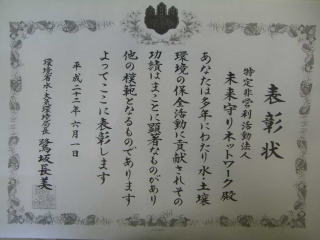 表彰状
特定非営利活動法人
未来守りネットワーク殿
あなたは多年にわたり水土壌
環境の保全活動に貢献されその
功績はまことに顕著なものがあり
他の模範となるものであります
よってここに表彰します
平成二十二年六月一日
環境省水・大気環境局長 鷺坂長美